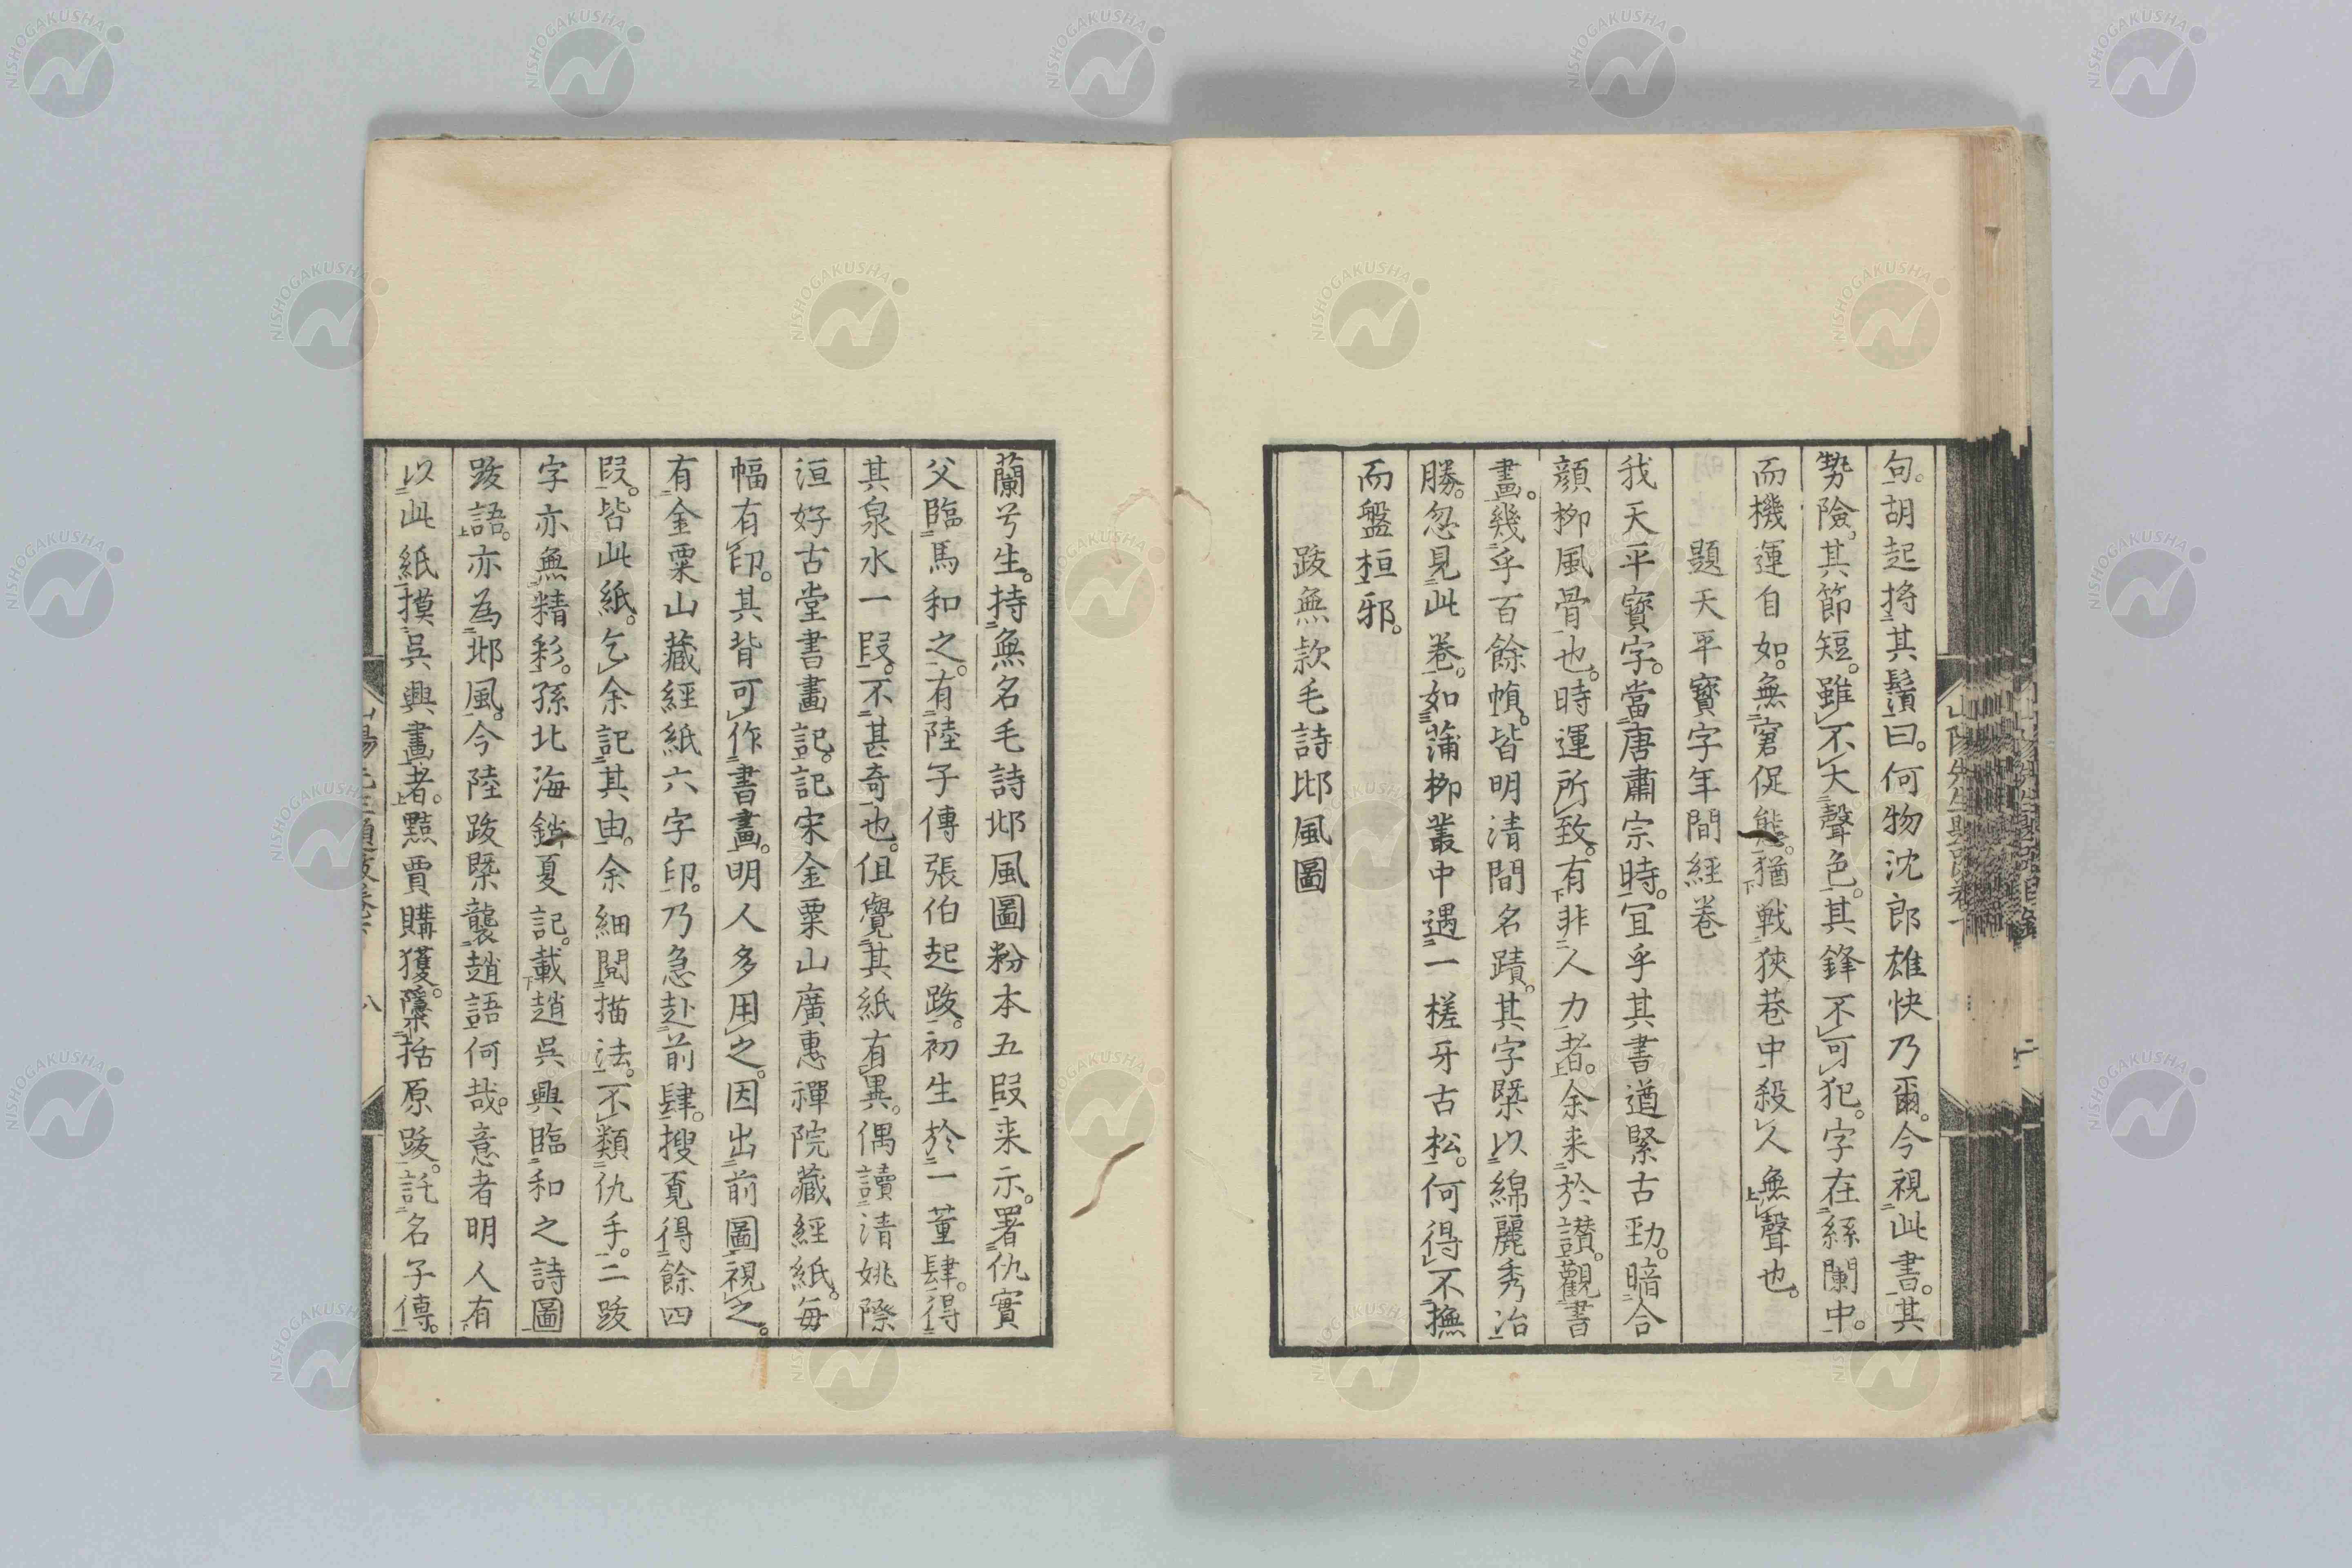 句。胡起将其鬚曰。何物沈郎雄快乃爾。今視此書。其
勢險。其節短。雖不大聲色。其鋒不可犯。字在絲闌中。
而機運自如。無窘促態。猶戰狹巷中殺人無聲也。
題天平寳字年間經卷
我天平寳字。當唐肅宗時。宜乎其書遒緊古勁。暗合
顔柳風骨也。時運所致。有非人力者。余来於讃。觀書
畫。幾乎百餘幀。皆明清間名蹟。其字槩以綿麗秀冶
勝。忽見此卷。如蒲柳叢中遇一槎牙古松。何得不撫
而盤桓邪。
跋無款毛詩邶風圖
蘭兮生。持無名毛詩邶風圖粉本五段来示。署仇實
父臨馬和之。有陸子傳張伯起跋。初生於一董肆。得
其泉水一段。不甚奇也。但覺其紙有異。偶讀清姚際
洹好古堂書畫記。記宋金粟山廣惠禪院藏經紙。每
幅有印。其背可作書畫。明人多用之。因出前圖視之。
有金粟山藏經紙六字印。乃急赴前肆。搜覔得餘四
段。皆此紙。乞余記其由。余細閲描法。不類仇手。二跋
字亦無精彩。孫北海銷夏記。載趙吳興臨和之詩圖
跋語。亦為邶風。今陸跋槩襲趙語何哉。意者明人有
以此紙摸吳興畫者。點賈購獲。檃括原跋。託名子傳。
山陽先生題跋卷 八